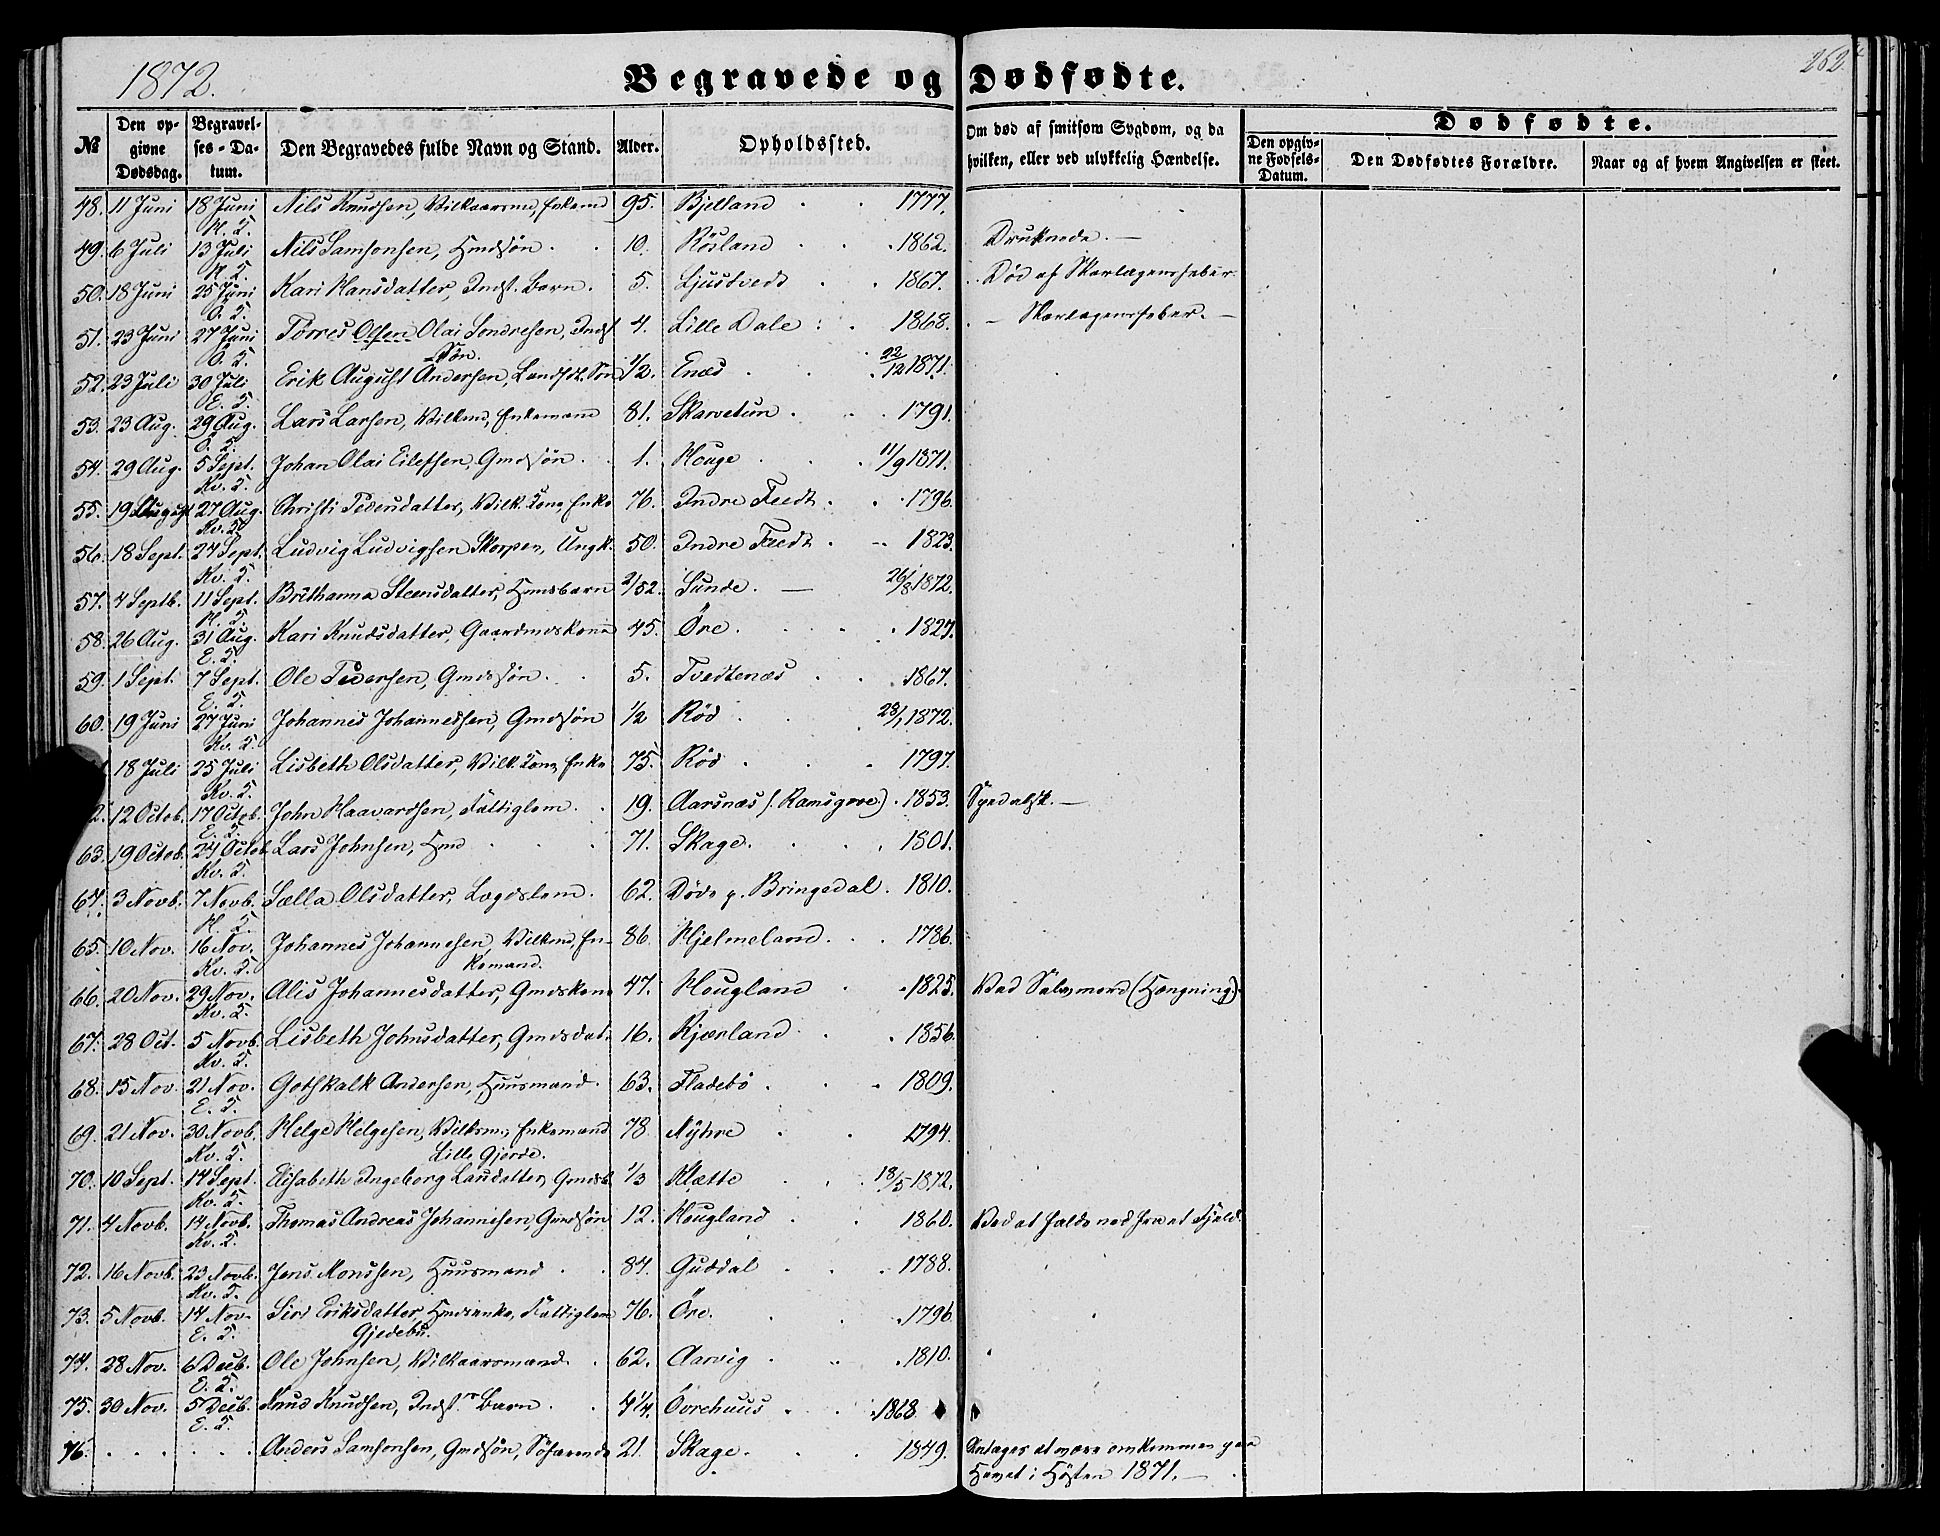 1872.
Begravede og Dødfødte.
262.
№
Den opgivne Dødsdag.
Begravelses-Datum.
Den Begravedes fulde Navn og Stand.
Alder.
Opholdssted.
Om død af smitsom Sygdom, og da hvilken, eller ved ulykkelig Hændelse.
Dødfødte.
Den opgivne Fødsels-Datum.
Den Dødfødtes Forældre.
Naar og af hvem Angivelsen er skeet.
48. 11 Juni 18 Juni Nils Knudsen, Vilkaarsmd, Enkemd 95. Bjelland 1777.
49. 6 Juli 13 Juli Nils Samsonsen, Hmdsøn 10. Røsland 1862. Druknede.
50. 18 Juni 25 Juni Kari Hansdatter, Indst. Barn. 5. Ljustvedt 1867. Død af Skarlagensfeber
51. 23 Juni 27 Juni Torres Olsen Olai Sondresen, Indst Søn. 4. Lille Dale 1868. Skarlagensfeber.
52. 23 Juli 30 Juli Erik August Andersen, Søn 1/2. Enæs 22/12 1871.
53. 23 Aug. 29 Aug. Lars Larsen, Vilkmd, Enkemann 81. Skarvetun 1791.
54. 29 Aug. 5 Sept. Johan Olai Eilefsen, Gmdsøn 1. Houge 11/9 1871.
55. 19 August 27 Aug. Christi Pedersdatter, Vilk. Kone, Enke 76. Indre Tvedt 1796.
56. 18 Sept. 27 Sept. Ludvig Ludvigsen Skorpen, Ungk. 50. Indre Tvedt 1823.
57. 4 Septb. 11 Sept. Brithanna Steensdatter, Hmdsbarn 2/52. Sunde 26/8 1872.
58. 26 Aug. 31 Aug. Kari Knudsdatter, Gaardmdskone 45. Öre 1827.
59. 1 Sept. 7 Sept. Ole Pedersen, Gmdssøn 5. Tvedtenæs 1867.
60. 19 Juni 27 Juni Johannes Johannessen, Gmdsøn 1/2 Rød 28/1 1872.
18 Juli 25 Juli Lisbeth Olsdatter, Vilk. Kone, Enke 75. Rød 1797.
2. 12 Octob. 17 Octob. John Haavardsen, Fattiglem 19. Aarsnæs (Ramsgroe) 1853.
63. 19 Octob. 24 Octob. Lars Johnsen, Hmd 71. Skage. 1801.
64. 3 Novb. 7 Novb. Sella Olsdatter, Lægdslem 62. Døde p. Bringedal 1810.
65. 10 Nov. 16 Nov. Johannes Johannesen, Vilkmd, Enkemand. 86. Hjelmeland 1786.
66. 20 Nov. 29 Nov. Alis Johannesdatter, Gmdskone 47. Hougland 1825. Ved Selvmord (Hængning).
67. 28 Oct. 5 Novb. Lisbeth Johnsdatter, Gmdsdat. 16. Kjærland 1856.
68. 15 Nov. 21 Nov. Gothskalk Andersen, Huusmand. 63. Fladebø 1809.
69. 21 Nov. 30 Novb. Helge Helgesen, Vilksm, Enkemand 78 Nyhre 1794.
Lille Gjerde.
70. 10 Sept. 14 Sept. Elisabeth Ingeborg Larsdatter, Gmdsb. 1/3 Klætte 18/5 1872.
71. 4 Novb. 14 Novb. Thomas Andreas Johannesen, Gmdsøn 12. Hougland 1860. Ved at falde ned fra et Fjeld.
72. 16 Novb. 23 Novb. Jens Monsen, Huusmand 84. Guddal 1788.
73. 5 Novb. 14 Nov. Siri Eriksdatter, Hmdsenke, Fattiglem 76. Öre. 1796.
Gjedebu.
74. 28 Nov. 6 Decb. Ole Johnsen, Vilkaarsmand 62. Aarvig 1810.
75. 30 Nov. 5 Decb. Knud Knudsen, Indst. Barn 4 1/4. Övrehuus 1868
76. Anders Samsonsen, Gmdsøn, Söfarende 21. Skage. 1849. Antages at være omkommen paa
Havet i Høsten 1871.